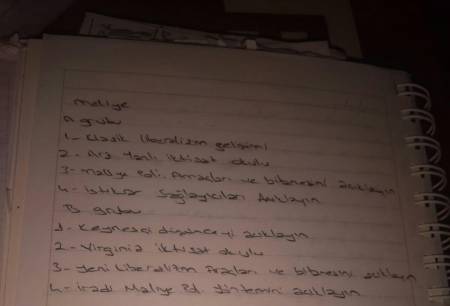 Maliye
A grubu
1- Klasik liberalizm gelişimi
2- Arz yanlı iktisat okulu
3- Maliye Pol. Amaçları ve bilmesini açıklayın
4- İstikrar Sağlayıcıları Açıklayın
B grubu
1- Keynesçi düşünceyi açıklayın
2- Virginia iktisat okulu
3- Yeni Liberalizm Araçları ve bilmesini açıklayın
4- iradi Maliye Pol. Yöntemini açıklayın